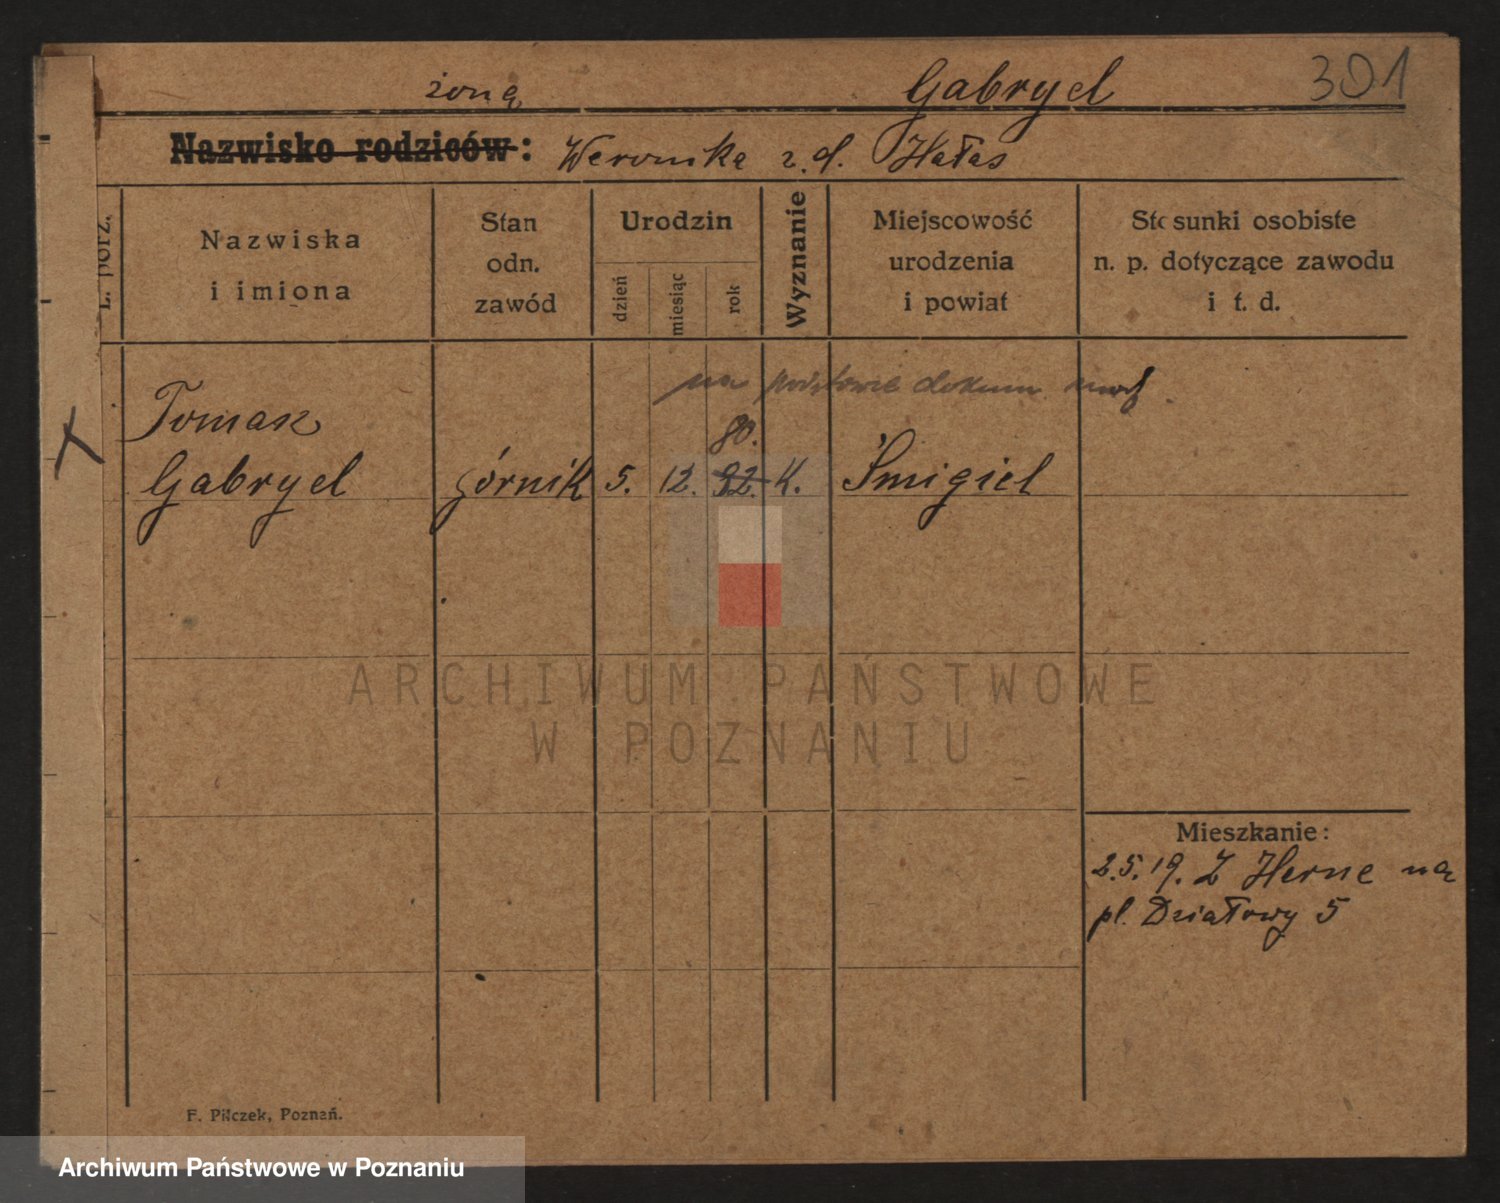 żoną Gabryel 301
Nazwisko rodziców: Weronika z.d. Hałas
L. porz.
Nazwiska
i imiona
Stan
odn.
zawód
Urodzin
dzień
miesiąc
rok
Wyznanie
Miejscowość
urodzenia
i powiat
Stosunki osobiste
n. p. dotyczące zawodu
i t. d.
na podstawie dokum.
Tomasz 80.
Gabryel górnik 5. 12. 92. K. Śmigiel
ARCHIWUM PAŃSTWOWE
W POZNANIU
Mieszkanie:
2.5.19. Z Herne na
pl. Działowy 5
F. Pilczek, Poznań.
Archiwum Państwowe w Poznaniu